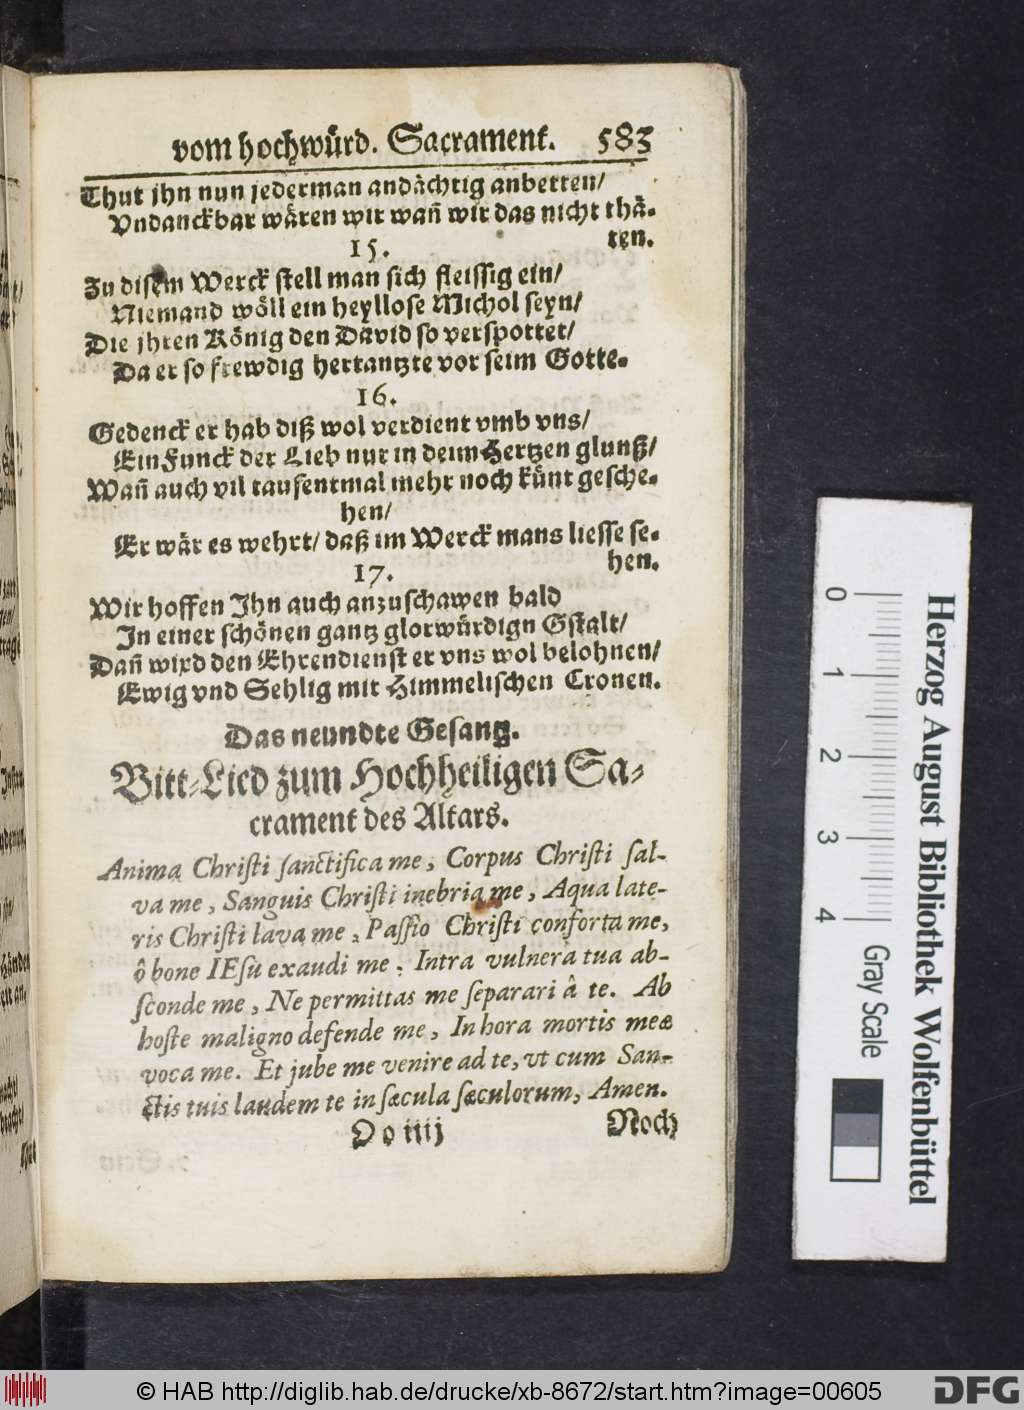 vom hochwürd. Sacrament. 583
Thut jhn nun jederman andächtig anbetten/
Vndanckbar wären wir wañ wir das nicht thä-
ten.
15.
Zu disem Werck stell man sich fleissig ein/
Niemand wöll ein heyllose Michol seyn/
Die jhren König den David so verspottet/
Da er so frewdig hertantzte vor seim Gotte.
16.
Gedenck er hab diß wol verdient vmb vns/
Ein Funck der Lieb nur in deim Hertzen glunß/
Wañ auch vil tausentmal mehr noch künt gesche-
hen/
Er wär es wehrt/ daß im Werck mans liesse se-
hen.
17.
Wir hoffen Ihn auch anzuschawen bald
In einer schönen gantz glorwürdign Gstalt/
Dañ wird den Ehrendienst er vns wol belohnen/
Ewig vnd Sehlig mit Himmelischen Cronen.
Das neundte Gesang.
Bitt-Lied zum Hochheiligen Sa-
crament des Altars.
Anima Christi sanctifica me, Corpus Christi sal-
va me, Sanguis Christi inebria me, Aqua late-
ris Christi lava me, Passio Christi conforta me,
ô bone IEsu exaudi me. Intra vulnera tua ab-
sconde me, Ne permittas me separari â te. Ab
hoste maligno defende me, In hora mortis meæ
voca me. Et jube me venire ad te, vt cum San-
ctis tuis laudem te in sæcula sæculorum, Amen.
Oo iiij Noch
Herzog August Bibliothek Wolfenbüttel
0 1 2 3 4 Gray Scale
© HAB http://diglib.hab.de/drucke/xb-8672/start.htm?image=00605 DFG